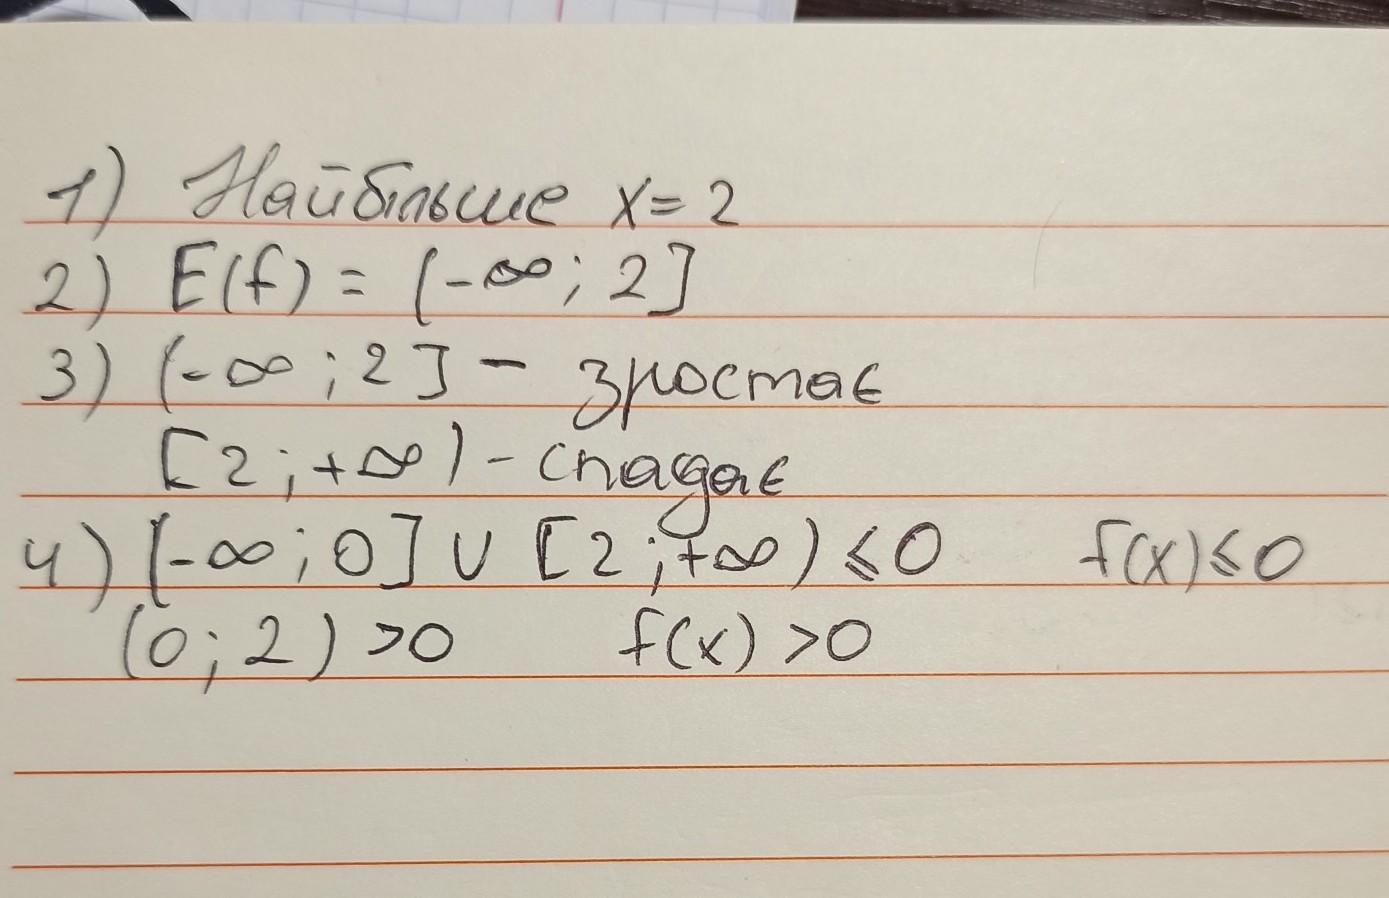 1) Найбільше x = 2
2) E(f) = (-∞; 2]
3) (-∞; 2] - зростає
[2; +∞) - спадає
4) (-∞; 0] ∪ [2; +∞) ≤ 0 f(x) ≤ 0
(0; 2) > 0 f(x) > 0